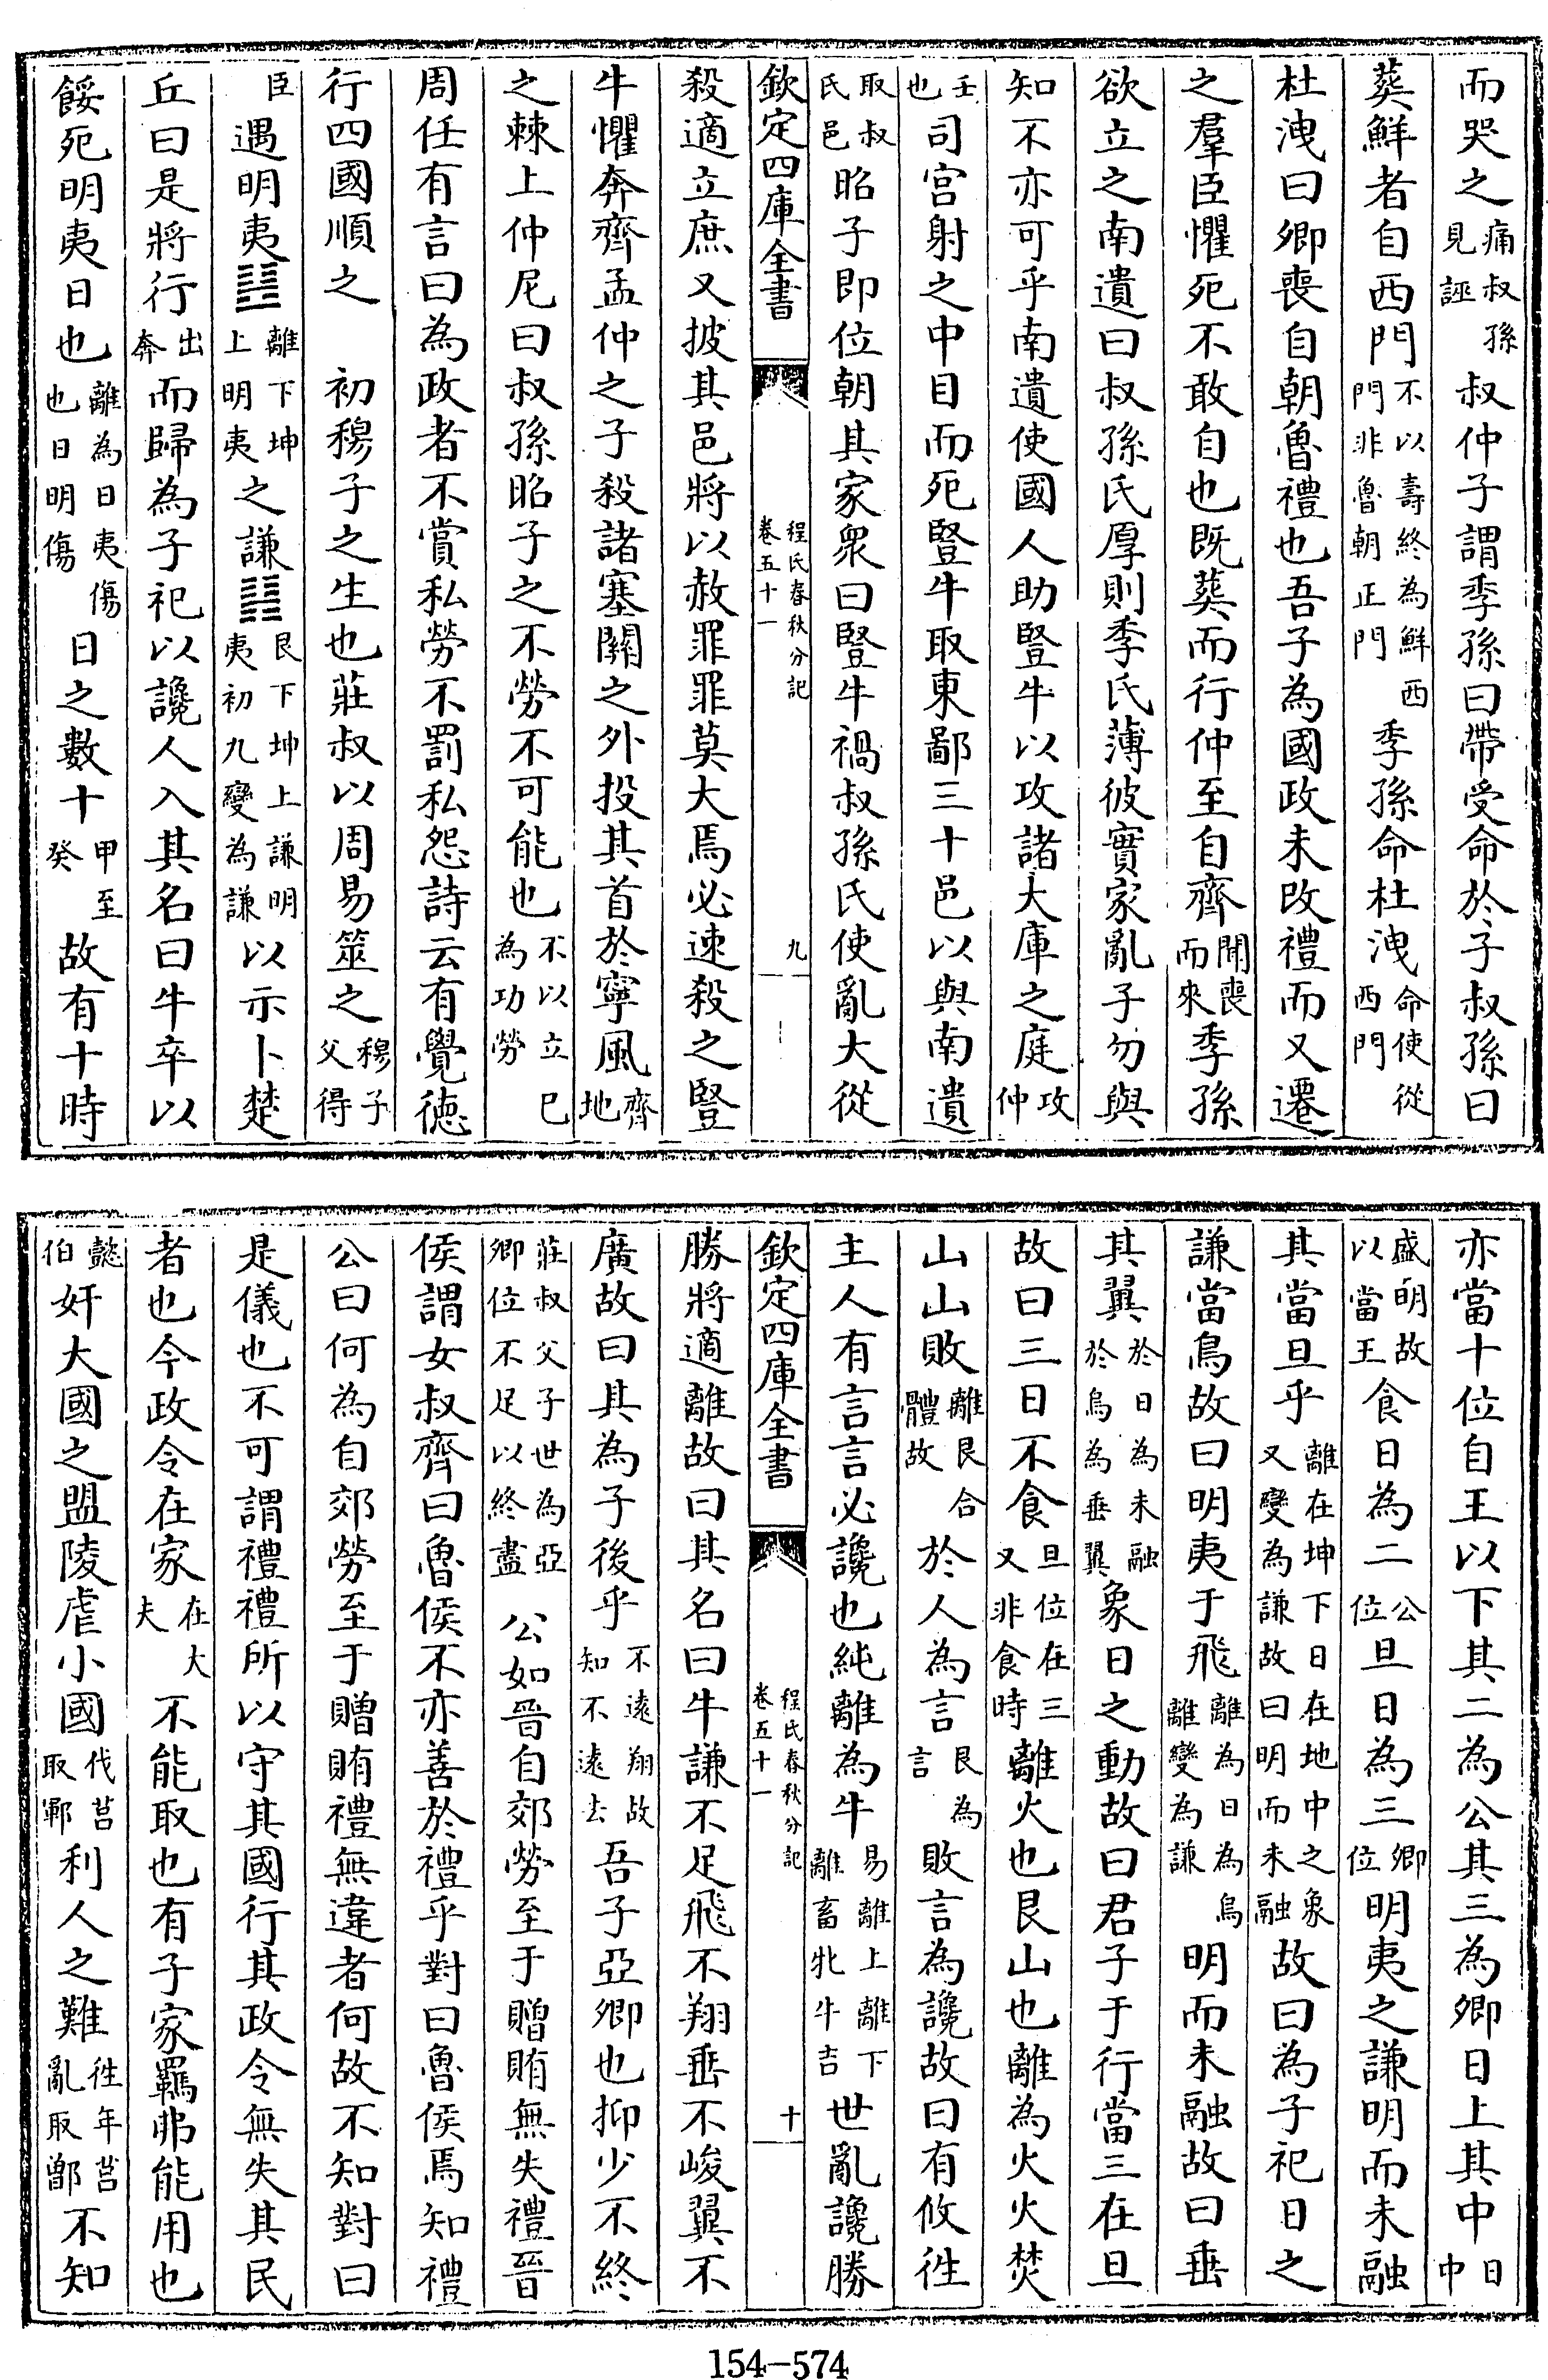 而哭之痛叔孫見誣叔仲子謂季孫曰帶受命於子叔孫曰
葬鮮者自西門不以壽終為鮮西門非魯朝正門季孫命杜洩命使從西門
杜洩曰卿喪自朝魯禮也吾子為國政未改禮而又遷
之羣臣懼死不敢自也既葬而行仲至自齊聞喪而來季孫
欲立之南遺曰叔孫氏厚則季氏薄彼實家亂子勿與
知不亦可乎南遺使國人助豎牛以攻諸大庫之庭攻仲
壬也司宮射之中目而死豎牛取東鄙三十邑以與南遺
取叔氏邑昭子即位朝其家衆曰豎牛禍叔孫氏使亂大從
欽定四庫全書 程氏春秋分記卷五十一 九
殺適立庶又披其邑將以赦罪罪莫大焉必速殺之豎
牛懼奔齊孟仲之子殺諸塞關之外投其首於寧風齊地
之棘上仲尼曰叔孫昭子之不勞不可能也不以立己為功勞
周任有言曰為政者不賞私勞不罰私怨詩云有覺徳
行四國順之 初穆子之生也莊叔以周易筮之穆子父得
臣遇明夷䷣離下坤上明夷之謙䷎艮下坤上謙明夷初九變為謙以示卜楚
丘曰是將行出奔而歸為子祀以讒人入其名曰牛卒以
餒死明夷日也離為日夷傷也日明傷日之數十甲至癸故有十時
亦當十位自王以下其二為公其三為卿日上其中日中
盛明故以當王食日為二公位旦日為三卿位明夷之謙明而未融
其當旦乎離在坤下日在地中之象又變為謙故曰明而未融故曰為子祀日之
謙當鳥故曰明夷于飛離為日為鳥離變為謙明而未融故曰垂
其翼於日為未融於鳥為垂翼象日之動故曰君子于行當三在旦
故曰三日不食旦位在三又非食時離火也艮山也離為火火焚
山山敗離艮合體故於人為言艮為言敗言為讒故曰有攸徃
主人有言言必讒也純離為牛易離上離下離畜牝牛吉世亂讒勝
欽定四庫全書 程氏春秋分記卷五十一 十
勝將適離故曰其名曰牛謙不足飛不翔垂不峻翼不
廣故曰其為子後乎不遠翔故知不遠去吾子亞卿也抑少不終
莊叔父子世為亞卿位不足以終盡 公如晉自郊勞至于贈賄無失禮晉
侯謂女叔齊曰魯侯不亦善於禮乎對曰魯侯焉知禮
公曰何為自郊勞至于贈賄禮無違者何故不知對曰
是儀也不可謂禮禮所以守其國行其政令無失其民
者也今政令在家在大夫不能取也有子家羈弗能用也
懿伯奸大國之盟陵虐小國伐莒取鄆利人之難徃年莒亂取鄫不知
154-574